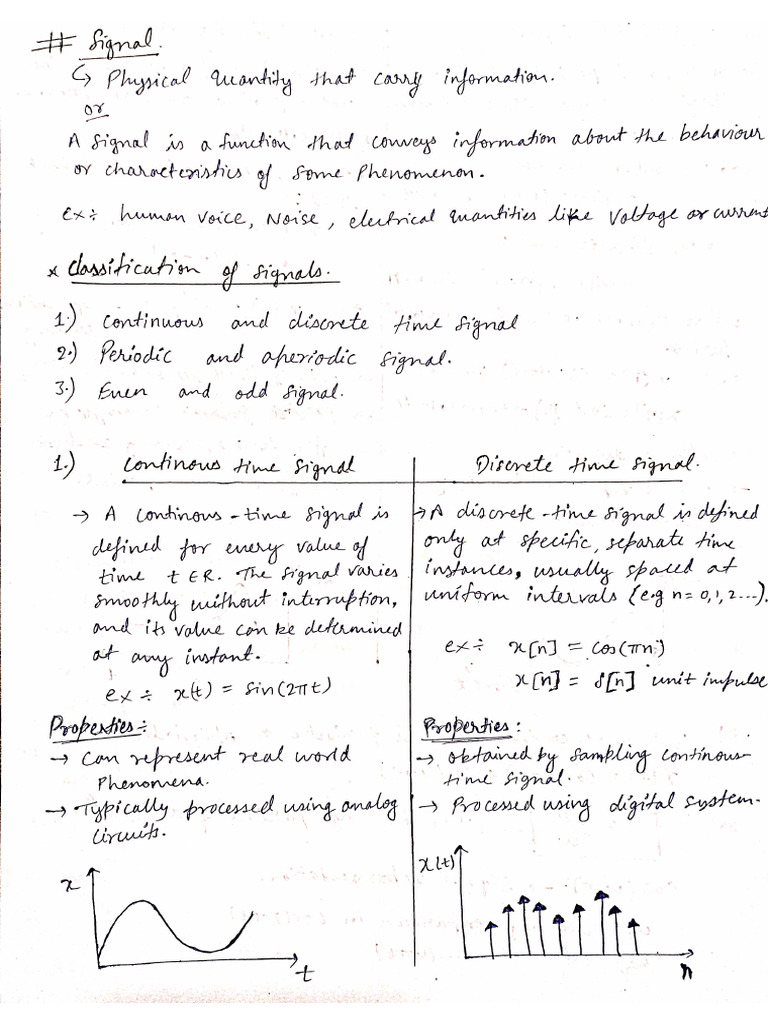 # Signal.
↳ Physical Quantity that carry information.
or
A Signal is a function that conveys information about the behaviour
or characteristics of some Phenomenon.
ex÷ human voice, Noise, electrical quantities like Voltage or current
* Classification of Signals.
1.) Continuous and discrete time Signal
2.) Periodic and aperiodic Signal.
3.) Even and odd Signal.
1.) Continous time Signal
→ A Continous-time Signal is
defined for every value of
time t ∈ R. The Signal varies
smoothly without interruption,
and its value can be determined
at any instant.
ex÷ x(t) = Sin(2πt)
Properties÷
→ Can represent real world
Phenomena.
→ Typically processed using analog
Circuits.
x
t
Discrete time Signal.
→ A discrete-time Signal is defined
only at specific, separate time
instances, usually spaced at
uniform intervals (e.g n=0,1,2...).
ex÷ x[n] = Cos(πn)
x[n] = δ[n] unit impulse
Properties:
→ obtained by Sampling Continous-
time Signal.
→ Processed using digital system.
x(t)
n